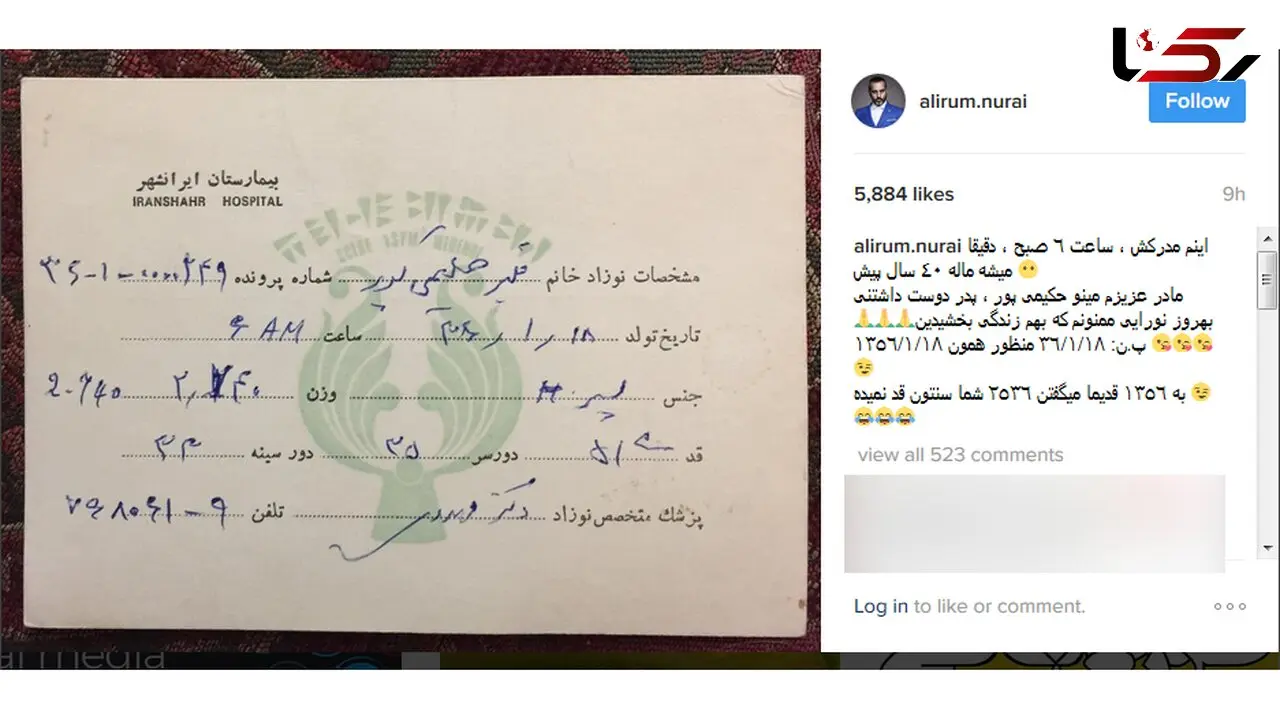 رکنا
بیمارستان ایرانشهر
IRANSHAHR HOSPITAL
مشخصات نوزاد خانم حکیمی پور شماره پرونده
تاریخ تولد ۳۶/۱/۱۸ ساعت 6 AM
جنس پسر وزن ۲,۷۴۰ 2.740
قد ۵۱ دورسر ۳۵ دور سینه ۳۳
پزشک متخصص نوزاد دکتر تلفن
alirum.nurai
Follow
5,884 likes
9h
alirum.nurai اینم مدرکش ، ساعت ٦ صبح ، دقیقا
میشه ماله ٤٠ سال پیش 😶
مادر عزیزم مینو حکیمی پور ، پدر دوست داشتنی
بهروز نورایی ممنونم که بهم زندگی بخشیدین🙏🙏🙏
😘😘😘 پ.ن: ٣٦/١/١٨ منظور همون ١٣٥٦/١/١٨
😉
😉 به ١٣٥٦ قدیما میگفتن ٢٥٣٦ شما سنتون قد نمیده
😂😂😂
view all 523 comments
Log in to like or comment.
al media